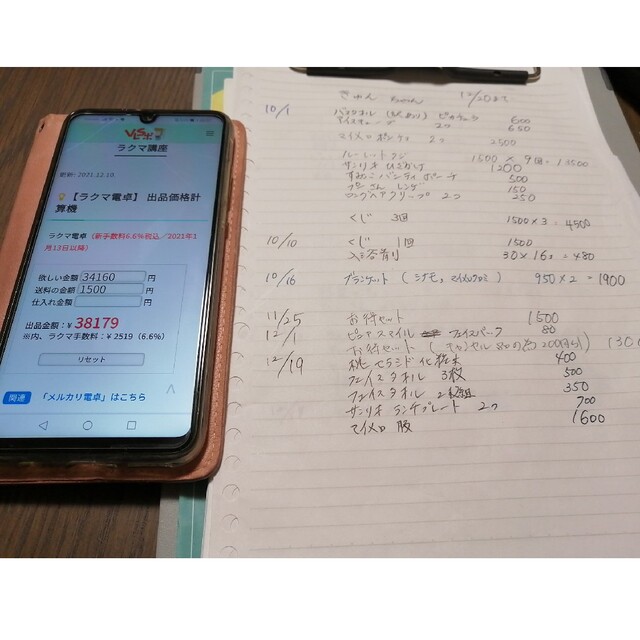 ラクマ講座
更新: 2021.12.10
【ラクマ電卓】 出品価格計
算機
ラクマ電卓 (新手数料6.6%税込／2021年1
月13日以降)
欲しい金額 34160 円
送料の金額 1500 円
仕入れ金額 円
出品金額：¥ 38179
※内、ラクマ手数料：¥ 2519 (6.6%)
リセット
関連 「メルカリ電卓」はこちら
12/20まで
10/1 600
2つ 650
マイメロ パンティ 2つ 2500
1500 × 9回 = 13500
1200
パンティ ポーチ 500
プーさん レンゲ 150
ロングヘアクリップ 2つ 250
くじ 3回 1500×3 = 4500
10/10 くじ 1回 1500
入浴剤 30×16コ = 480
10/16 ブランケット (シナモ, マイメロクロミ) 950×2 = 1900
11/25 お得セット 1500
12/1 ピュアスマイル フェイスパーク 80
お得セット (キャンセル 80の為200円引) 130
12/19 桃セラミド化粧水 400
フェイスタオル 3枚 500
フェイスタオル 350
サンリオ ランチプレート 2つ 700
マイメロ 服 1600